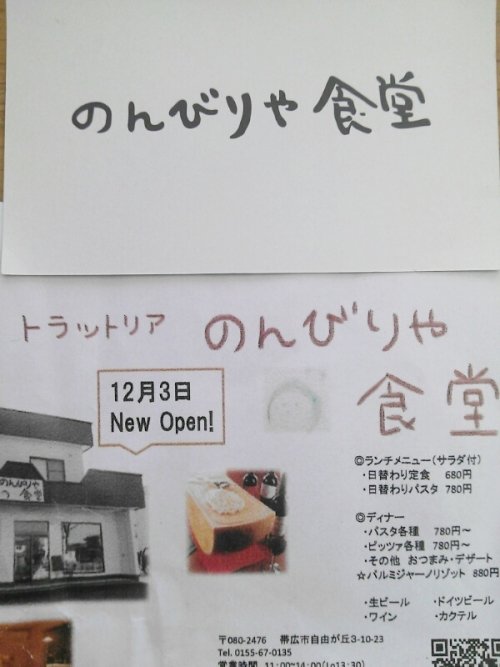 のんびりや 食堂
トラットリア のんびりや
食堂
12月3日
New Open!
のんびりや
食堂
◎ランチメニュー(サラダ付)
・日替わり定食 680円
・日替わりパスタ 780円
◎ディナー
・パスタ各種 780円～
・ピッツァ各種 780円～
・その他 おつまみ・デザート
☆パルミジャーノリゾット 880円
・生ビール ・ドイツビール
・ワイン ・カクテル
〒080-2476 帯広市自由が丘3-10-23
Tel. 0155-67-0135
営業時間 11:00~14:00(Lo13:30)